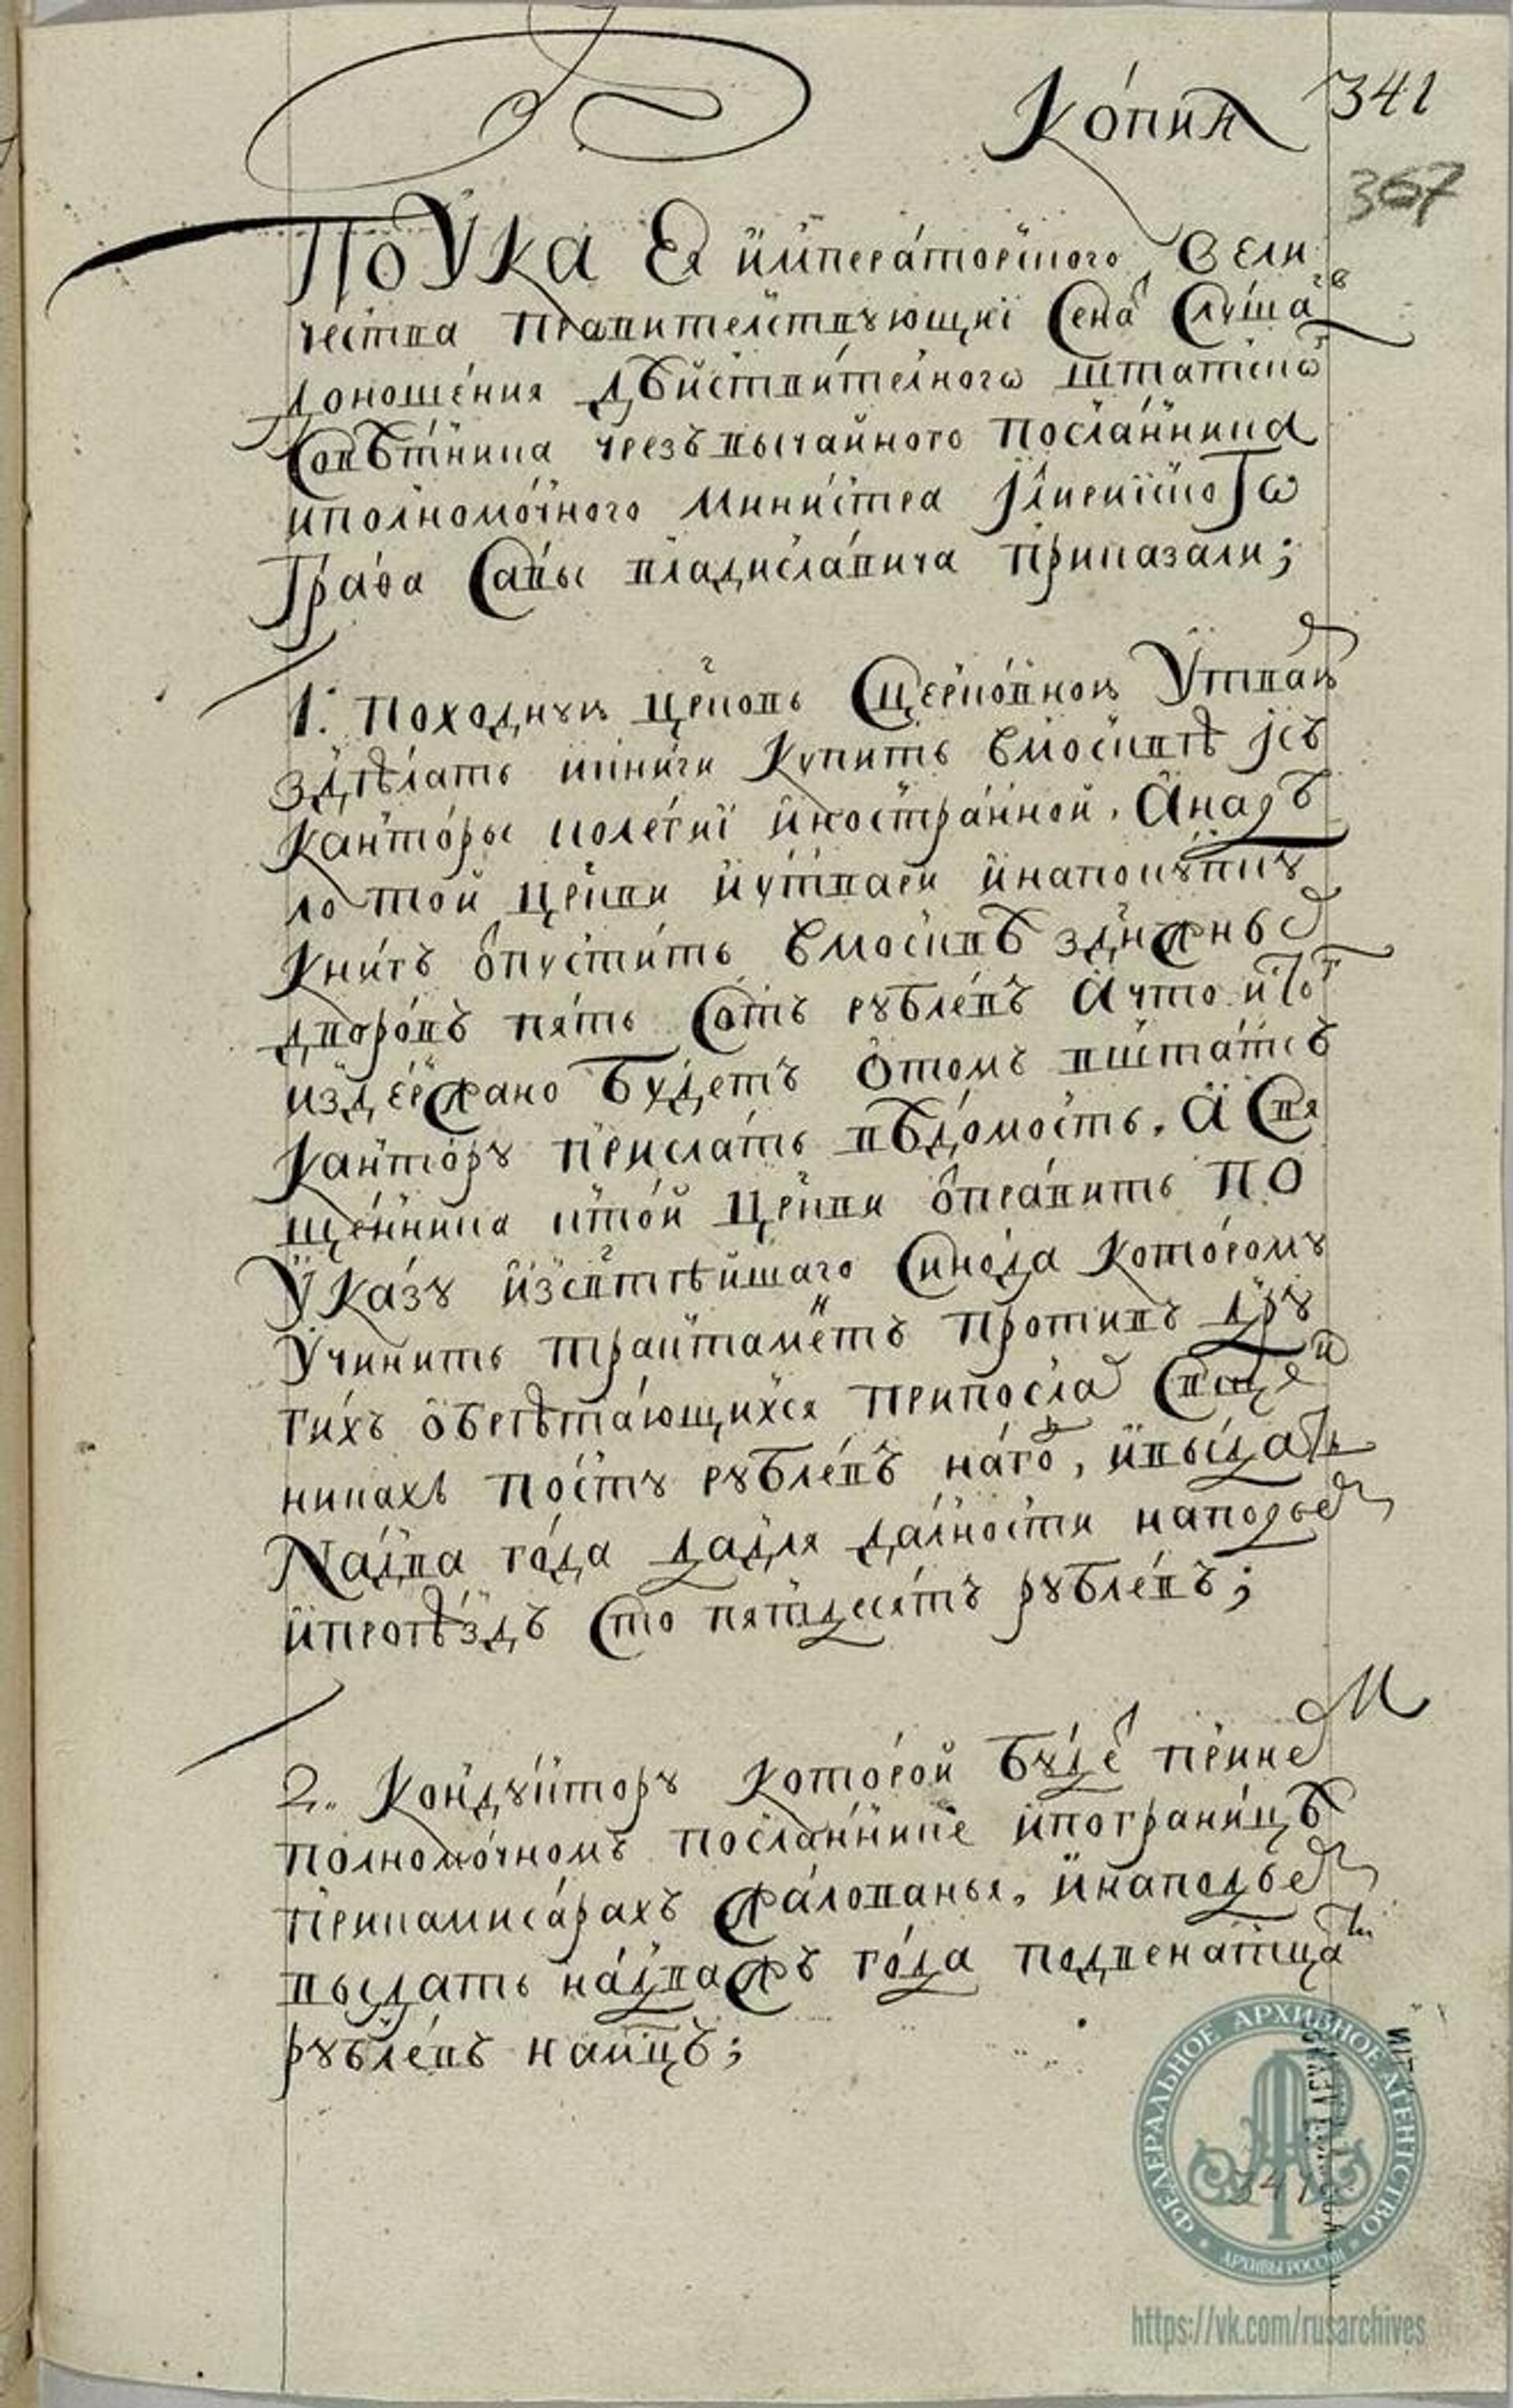 Копия 341
367
По Ука Ея императорского вели
чества правителствующиї Сенат Слушав
доношения дѣиствителного штатского
Совѣтника чрезъвычайного посланника
иполномочного министра Iлириского
Графа Савы владиславича приказали;
1. походную церковь Сцерковною Утварю
здѣлать ікниги купить вмосквѣ iсъ
канторы колегиї иностранной. Анадѣ
ло той церкви иутвари инапокупку
книгъ отпустить вмосквѣ зденежнаго
дворовъ пять Сотъ рублевъ Ачто икого
издержано будетъ отомъ вштатсъ
кантору прислать вѣдомость. А Свя
щенника ктой церкви отправить по
Указу изсвятѣйшаго Синода которому
Учинить трактаментъ противъ дру
гихъ обретающихся припослах Священ
никахъ посту рублевъ нагод, ивыдать
Надва года дадля далности наподъем
ипроѣздъ Сто пятдесятъ рублевъ;
2. Кондуктору которой будет принем
полномочномъ посланнике ипограницѣ
прикамисарахъ жалованья. инаподъем
выдать надважъ года подвенатцати
рублевъ намцъ;
ФЕДЕРАЛЬНОЕ АРХИВНОЕ АГЕНТСТВО
АРХИВЫ РОССИИ
https://vk.com/rusarchives